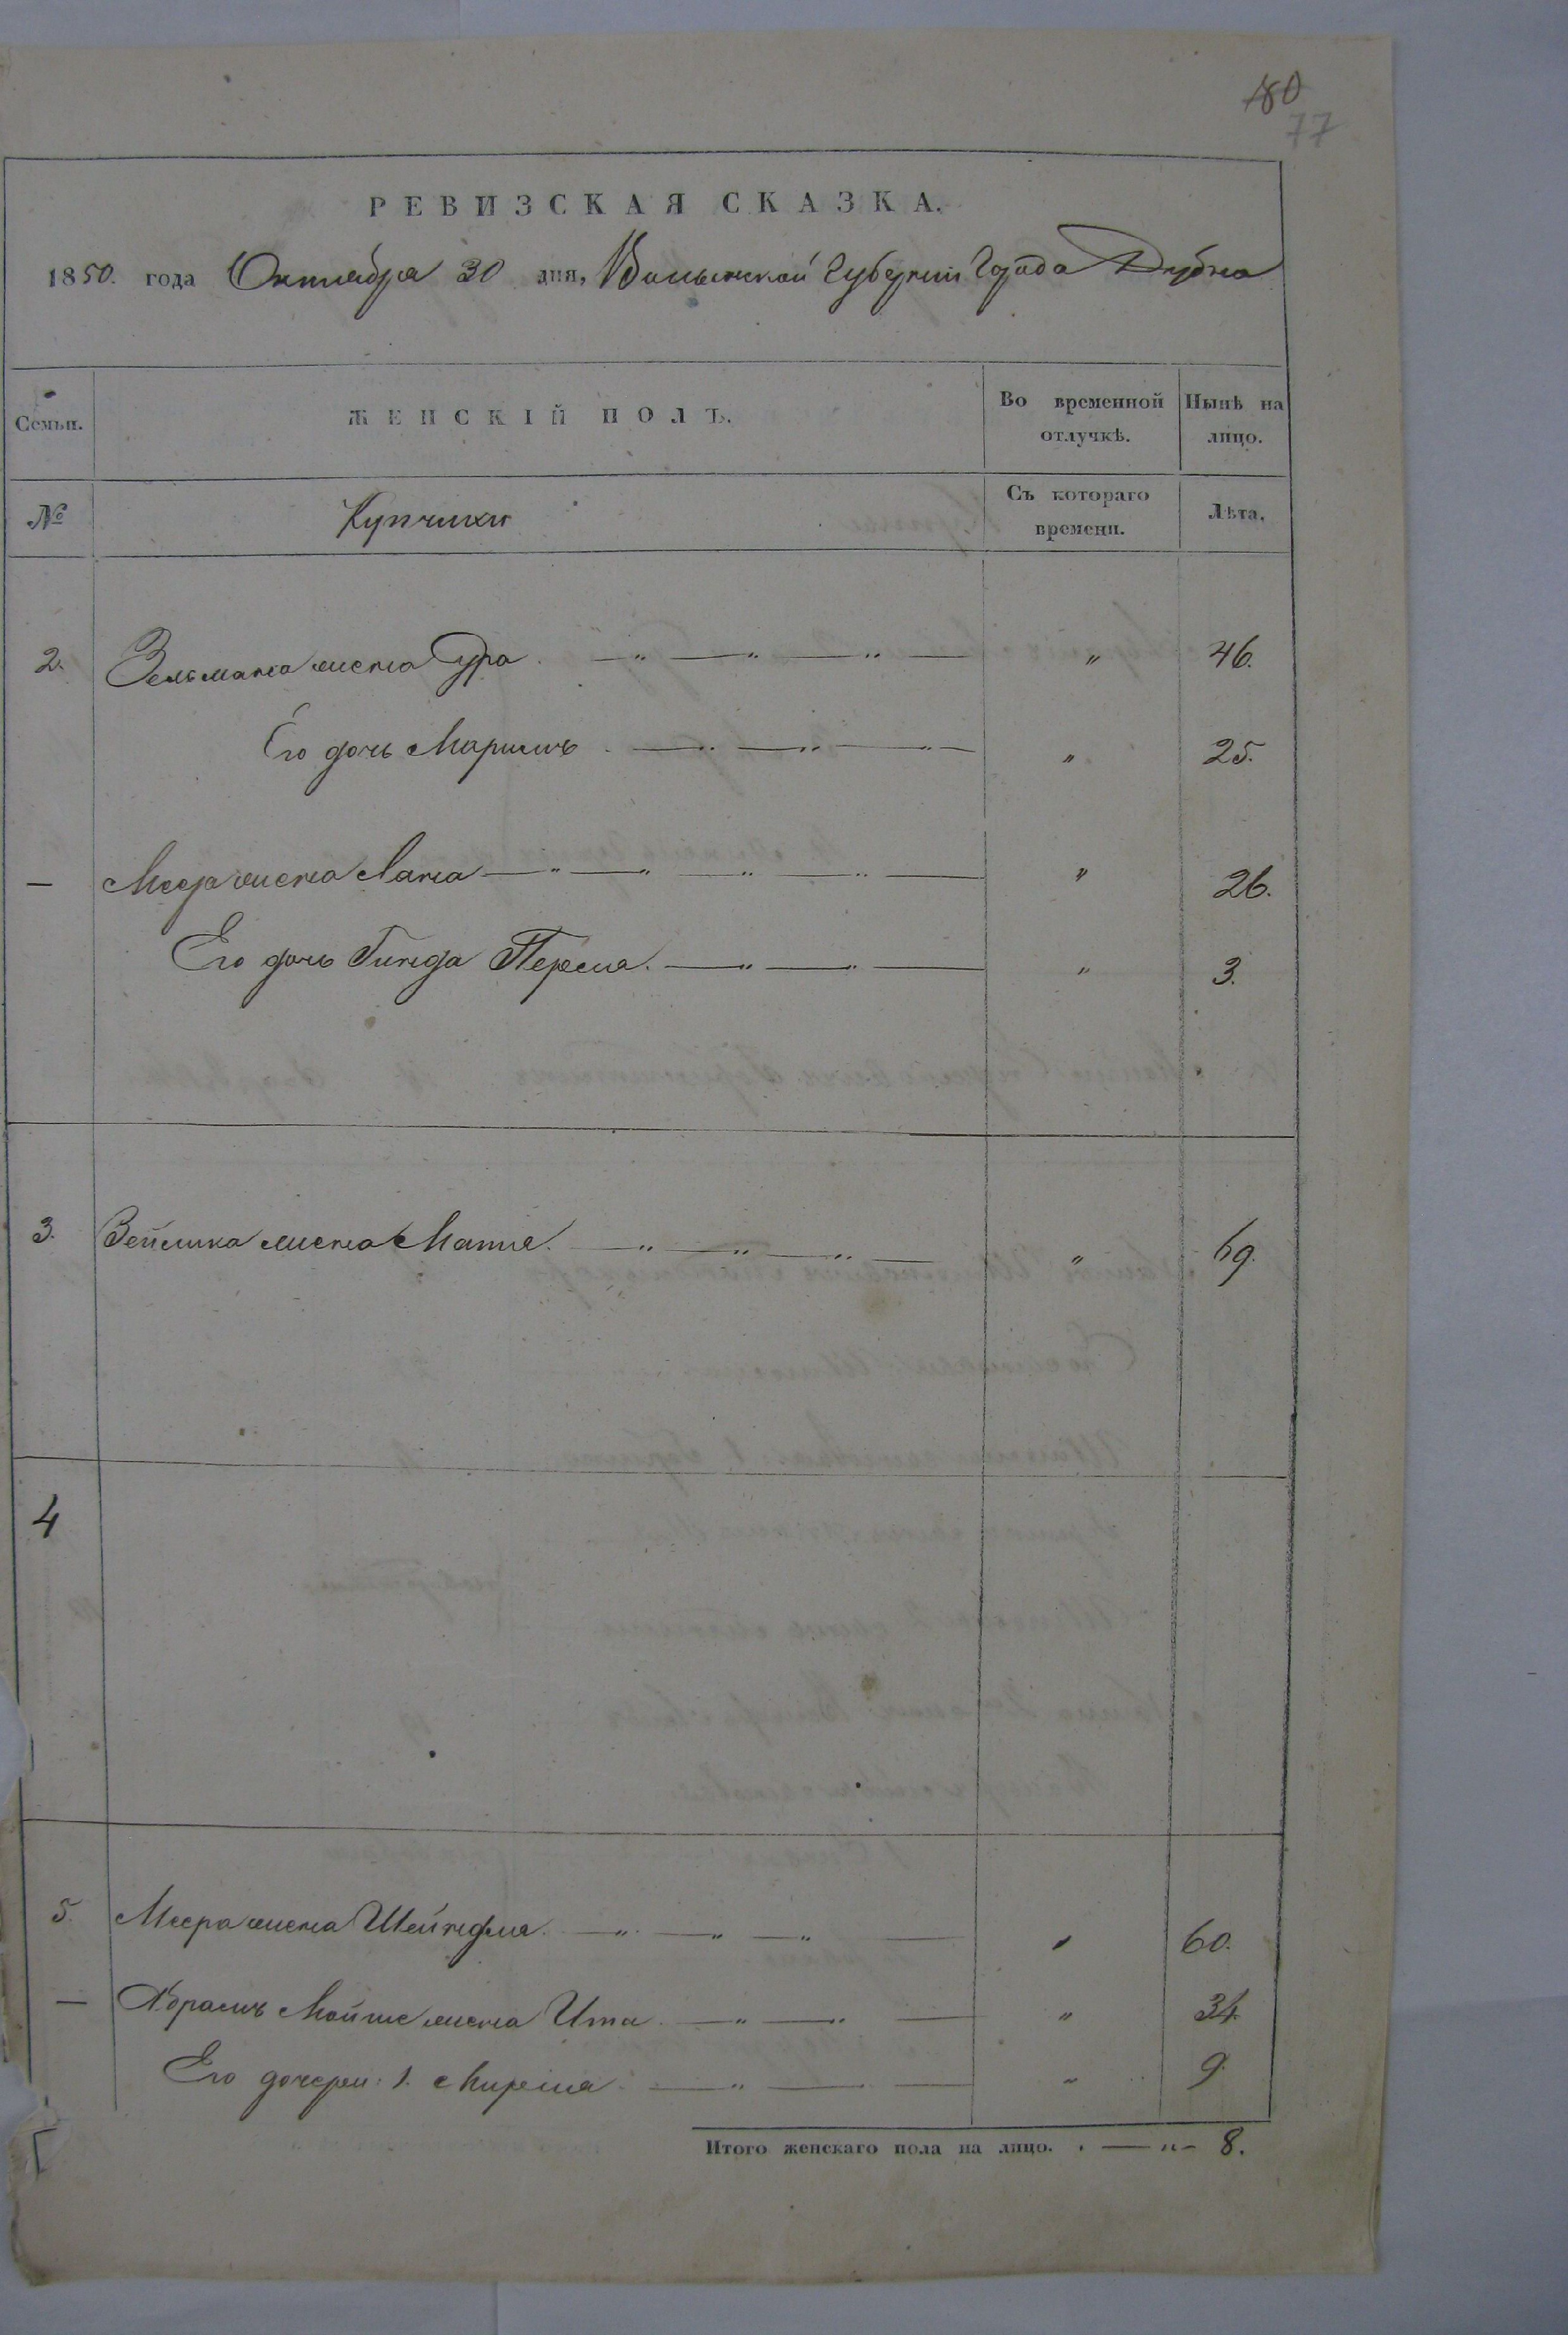 180
77
РЕВИЗСКАЯ СКАЗКА.
1850. года Октября 30 дня, Волынской Губернии Города Дубна
Семьи.
ЖЕНСКІЙ ПОЛЪ.
Во временной отлучкѣ.
Нынѣ на лицо.
№
Купчихи
Съ котораго времени.
Лѣта.
2. Зельмана жена Сура. — " — " — " — " 46.
Его дочь Мариемъ. — " — " — " — " 25.
— Меера жена Хана — " — " — " — " — " 26.
Его дочь Гинда Перела. — " — " — " 3.
3. Зейлика жена Матля. — " — " — " — " 69.
4
5. Меера жена Шейндля. — " — " — " — " 60.
— Абрамъ Мойше жена Ита. — " — " — " 34.
Его дочери: 1. Миреля. — " — — " 9.
Итого женскаго пола на лицо. . — " - 8.